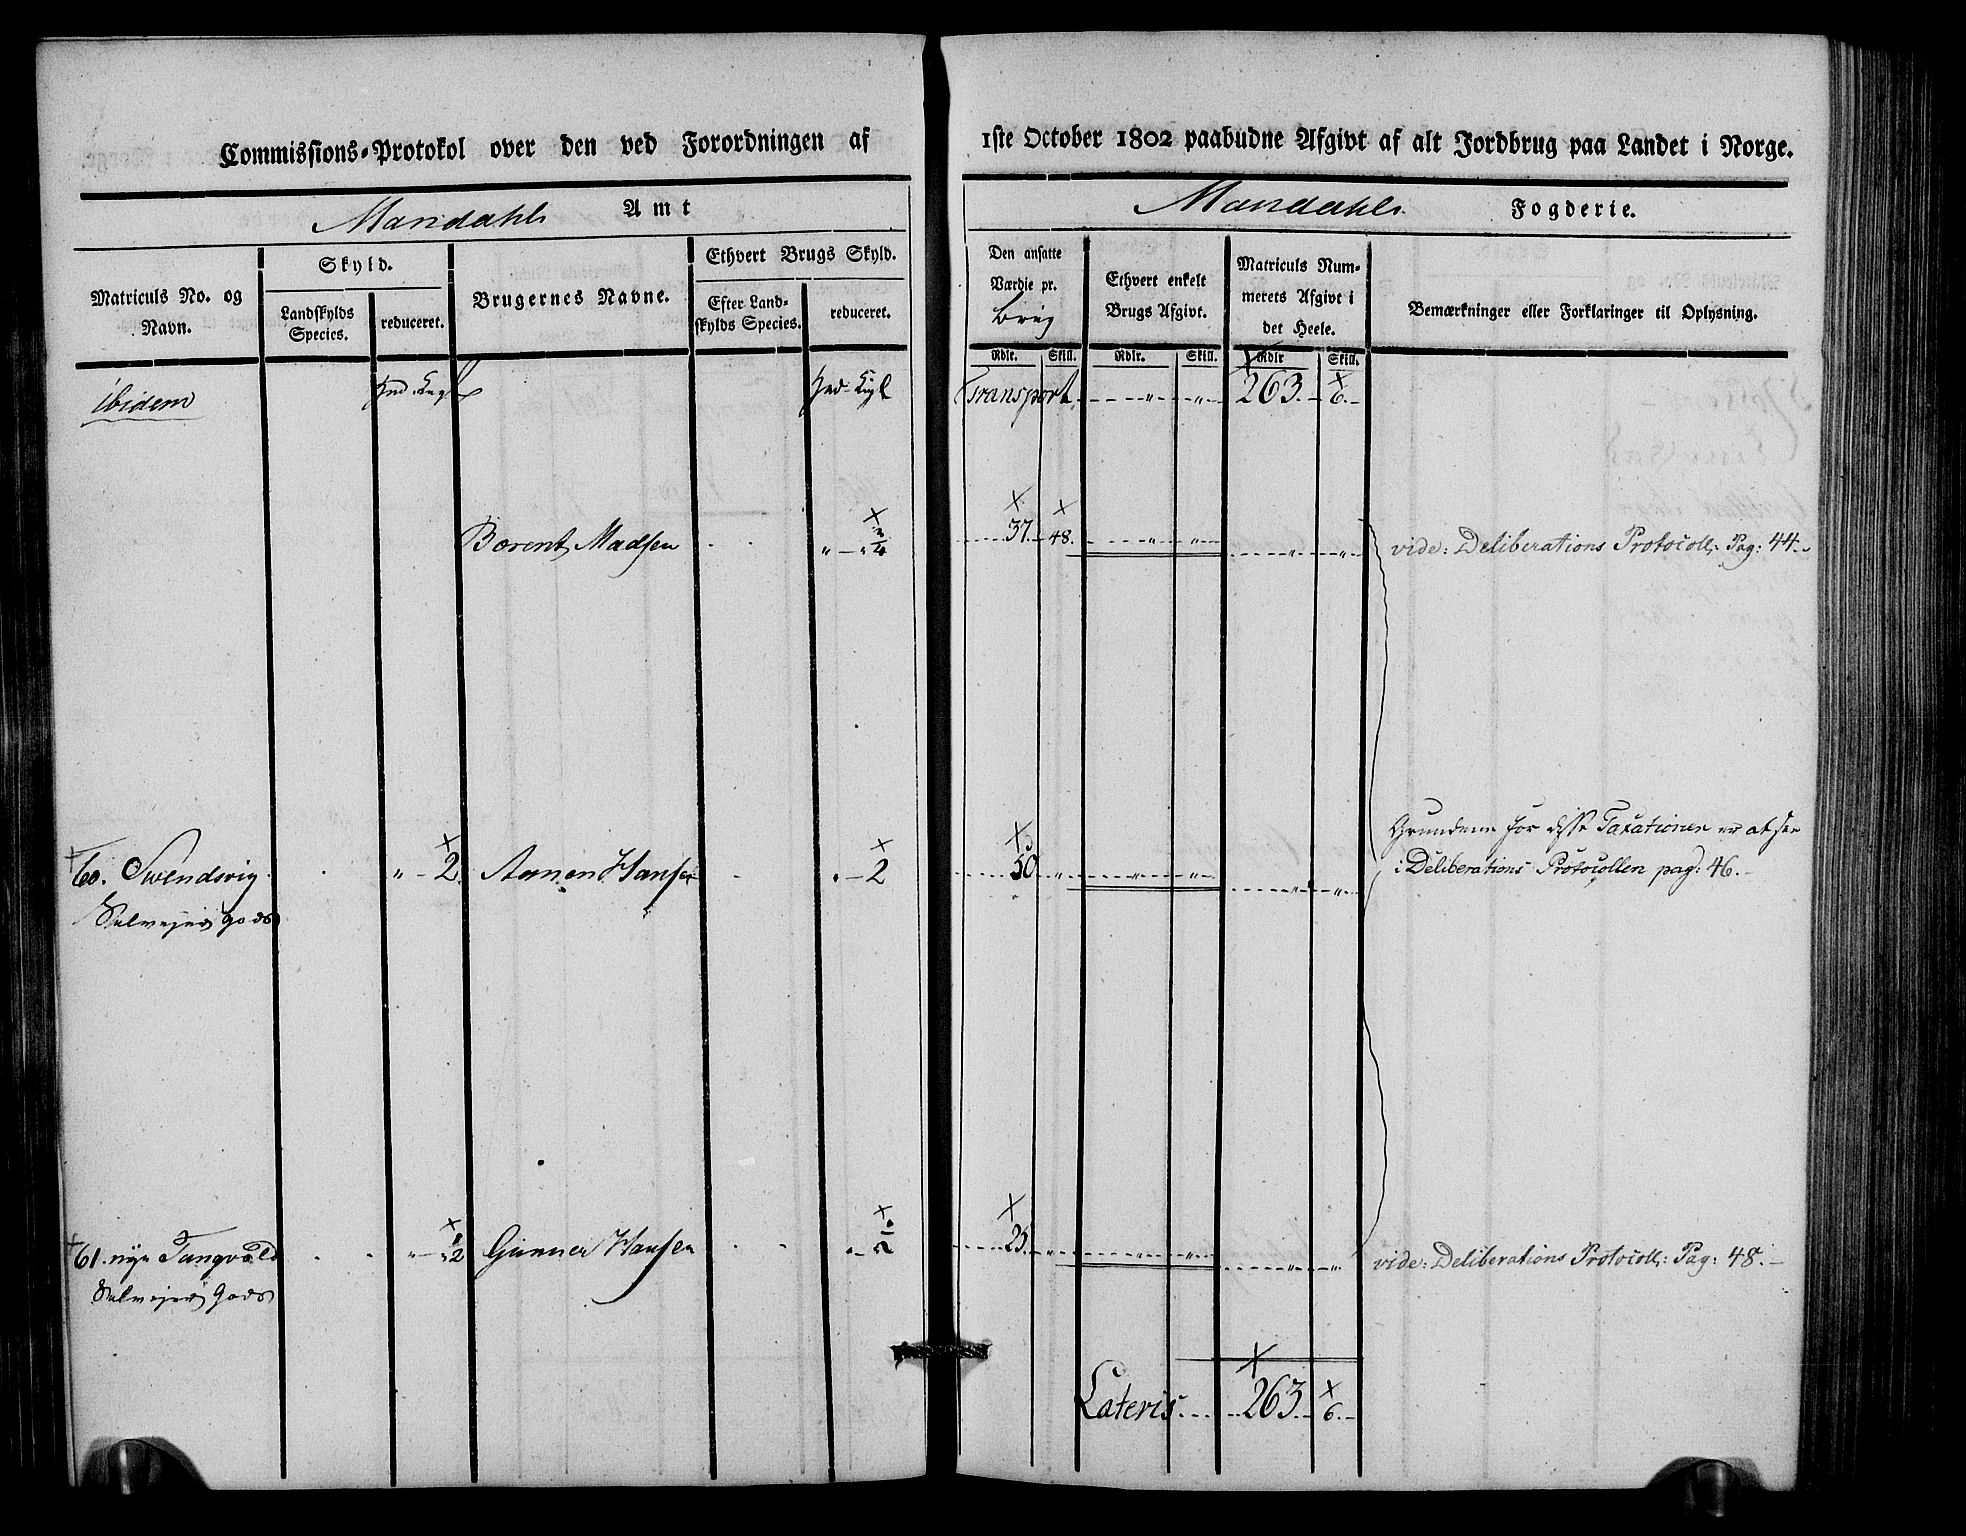 Commissions-Protokol over den ved Forordningen af
1ste October 1802 paabudne Afgivt af alt Jordbrug paa Landet i Norge.
Mandahls Amt
Mandahls Fogderie.
Matriculs No. og Navn.
Skyld.
Landskylds Species.
reduceret.
Brugernes Navne.
Ethvert Brugs Skyld.
Efter Landskylds Species.
reduceret.
Den ansatte Værdie pr. Brug
Ethvert enkelt Brugs Afgivt.
Matriculs Nummerets Afgivt i det Heele.
Bemærkninger eller Forklaringer til Oplysning.
Rdlr. Skill. Rdlr. Skill. Rdlr Skill.
ibidem
Transport 263. 6.
Berent Madsen 3/4 37. 48. vide: Deliberations Protocoll: Pag: 44.
Grundene for disse Taxationer er at see
60. Swendsvig. 2 Aanen Hansen 2 50 i Deliberations Protocollen pag: 46.
Selvejer gods
61. nye Tangvald 1/2 Gunner Hansen 1/2 25. vide: Deliberations Protocoll: Pag: 48.
Selvejer Gods
Lateris 263. 6.